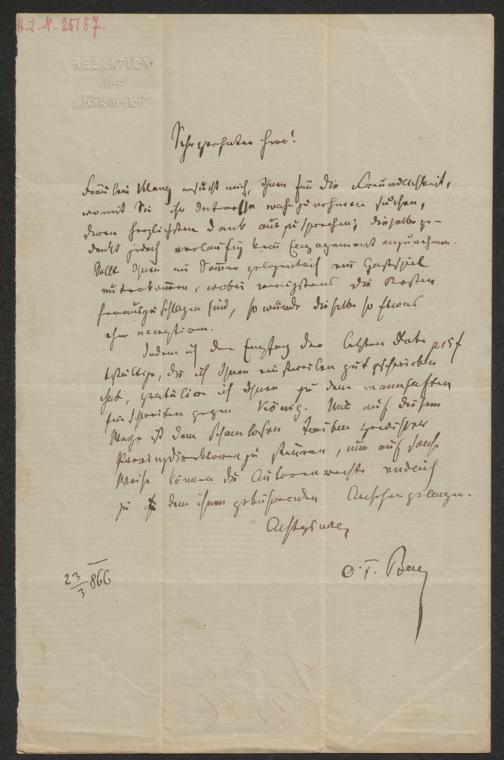 H.I.N. 25187.
REDAKTION
des
„Kikeriki“
Sehr geehrter Herr!
Fräulein Klang ersucht mich, Ihnen für die Freundlichkeit,
womit Sie ihr Interesse wahrzunehmen suchen,
ihren herzlichsten Dank auszusprechen; dieselbe ge-
denkt jedoch vorläufig kein Engagement anzunehmen.
Sollte Ihnen im Sommer gelegentlich ein Gastspiel
unterkommen, wobei wenigstens die Kosten
herauszuschlagen sind, so würde dieselbe so Etwas
eher acceptiren.
Indem ich den Empfang der letzten Rate
bestätige, die ich Ihnen einstweilen gut geschrieben
hab, gratulire ich Ihnen zu dem mannhaften
Einschreiten gegen König. Nur auf diesem
Wege ist dem schamlosen Treiben gewisser
Provinzdirektoren zu steuern, nur auf solche
Weise können die Autorenrechte endlich
zu dem ihnen gebührenden Ansehen gelangen.
Achtungsvoll
O. F. Berg
23/3 866